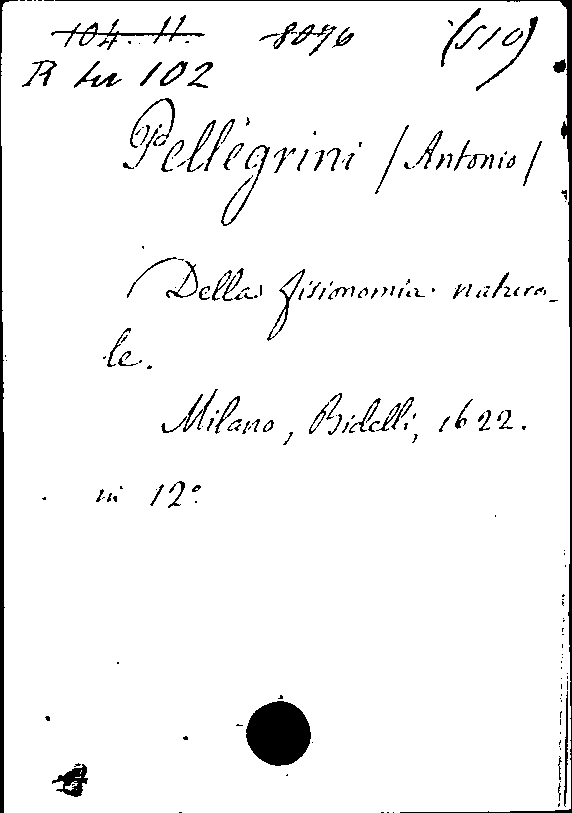 104. 11. 8076 (S10)
R in 102
Pellegrini / Antonio /
Della fisionomia natura-
le.
Milano, Bidelli, 1622.
in 12°